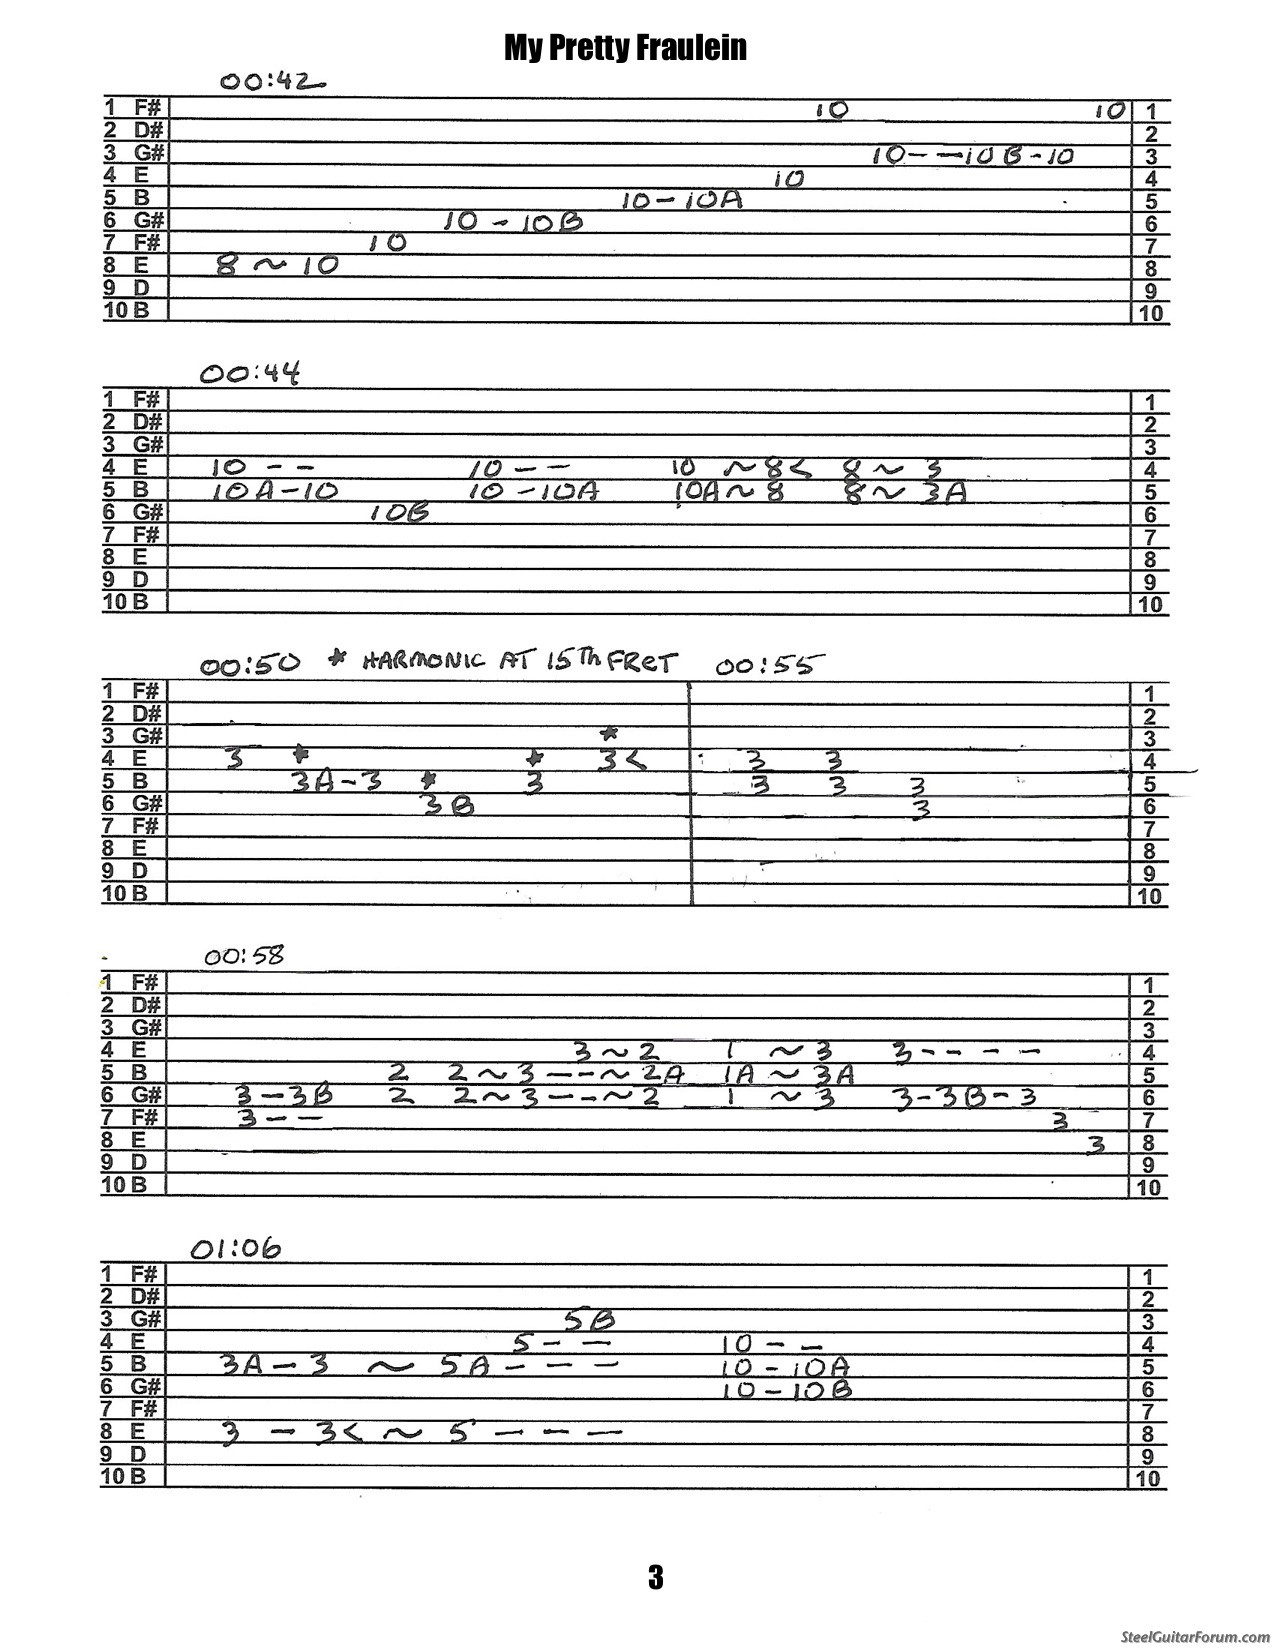 My Pretty Fraulein
00:42
1 F# 10 10 1
2 D# 2
3 G# 10 - - 10 B - 10 3
4 E 10 4
5 B 10 - 10A 5
6 G# 10 - 10B 6
7 F# 10 7
8 E 8 ~ 10 8
9 D 9
10 B 10
00:44
1 F# 1
2 D# 2
3 G# 3
4 E 10 - - 10 - - 10 ~ 8 < 8 ~ 3 4
5 B 10A - 10 10 - 10A 10A ~ 8 8 ~ 3A 5
6 G# 10B 6
7 F# 7
8 E 8
9 D 9
10 B 10
00:50 * HARMONIC AT 15Th FRET 00:55
1 F# 1
2 D# 2
3 G# * 3
4 E 3 * * 3 < 3 3 4
5 B 3A - 3 * 3 3 3 3 5
6 G# 3B 3 6
7 F# 7
8 E 8
9 D 9
10 B 10
00:58
1 F# 1
2 D# 2
3 G# 3
4 E 3 ~ 2 1 ~ 3 3 - - - - 4
5 B 2 2 ~ 3 - - ~ 2A 1A ~ 3A 5
6 G# 3 - 3B 2 2 ~ 3 - - ~ 2 1 ~ 3 3 - 3B - 3 6
7 F# 3 - - 3 7
8 E 3 8
9 D 9
10 B 10
01:06
1 F# 1
2 D# 2
3 G# 5B 3
4 E 5 - - 10 - - 4
5 B 3A - 3 ~ 5A - - - 10 - 10A 5
6 G# 10 - 10B 6
7 F# 7
8 E 3 - 3 < ~ 5 - - - 8
9 D 9
10 B 10
3
SteelGuitarForum.com